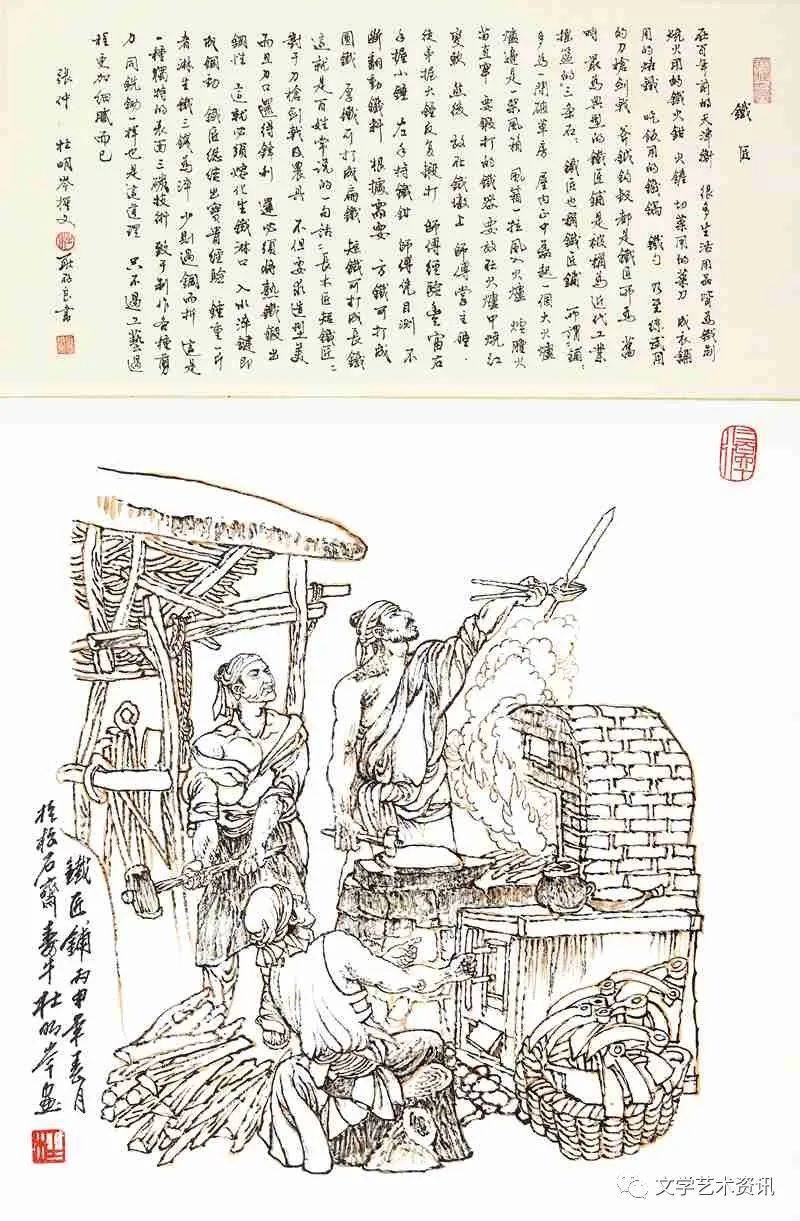 鐵匠
在百年前的天津衛 很多生活用品皆爲鐵制
燒火用的鐵火鉗 火鏟 切菜用的菜刀 成衣鋪
用的烙鐵 吃飯用的鐵鍋 鐵勺 乃至練武用
的刀槍劍戟 斧鉞鈎杈都是鐵匠所爲 舊
時 最爲典型的鐵匠鋪是被稱爲近代工業
搖籃的三条石 鐵匠也稱鐵匠鋪 所謂鋪
多爲一間破草房 屋内正中 起一個大火爐
爐邊是一架風箱 風箱一拉 風入火爐 爐膛火
苗直竄 要鍛打的鐵器要放在火爐中燒紅
變軟 然後 放在鐵墩上 師傅掌主錘
徒弟握大錘反复鍛打 師傅經驗豐富右
手握小錘 左手持鐵鉗 師傅凭目測 不
断翻動鐵料 根據需要 方鐵可打成
圓鐵 厚鐵可打成扁鐵 短鐵可打成長鐵
這就是百姓常説的一句話 長木匠短鐵匠
對于刀槍劍戟及農具 不但要求造型美
而且刀口還得鋒利 還必須將熟鐵鍛出
鋼性 這就必須熔化生鐵淋口 入水淬鍵即
成鋼 鐵匠總结出寶貴經驗 錘重一斤
者淋生鐵三錢爲淬 少則過鋼而折 這是
一種獨特的表面 碳技術 致于制作各種剪
刀 同銑鋤一樣也是這道理 只不過工藝過
程更加細膩而已
張仲 杜明岑撰文 書
鐵匠鋪 丙申年春月
於 石齋 杜明岑畫
文学艺术资讯